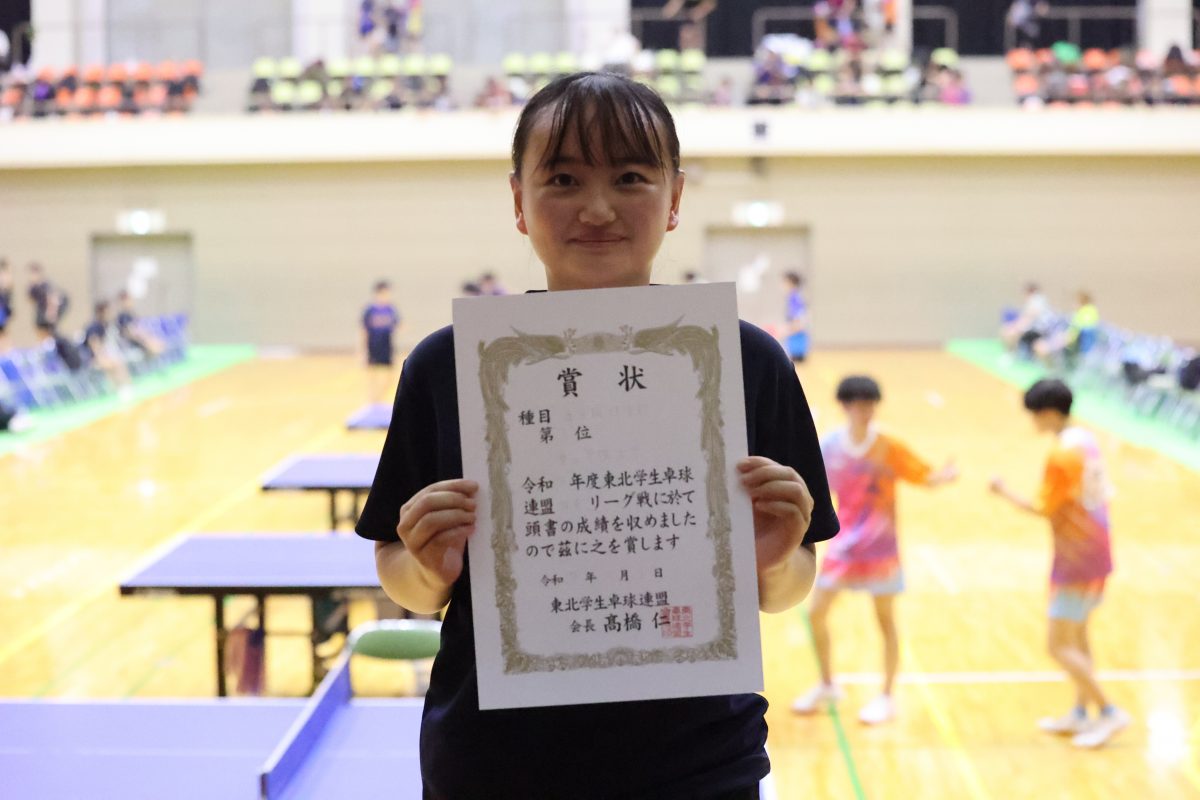 賞状
種目
第 位
令和 年度東北学生卓球
連盟 リーグ戦に於て
頭書の成績を収めました
ので茲に之を賞します
令和 年 月 日
東北学生卓球連盟
会長 髙橋 仁